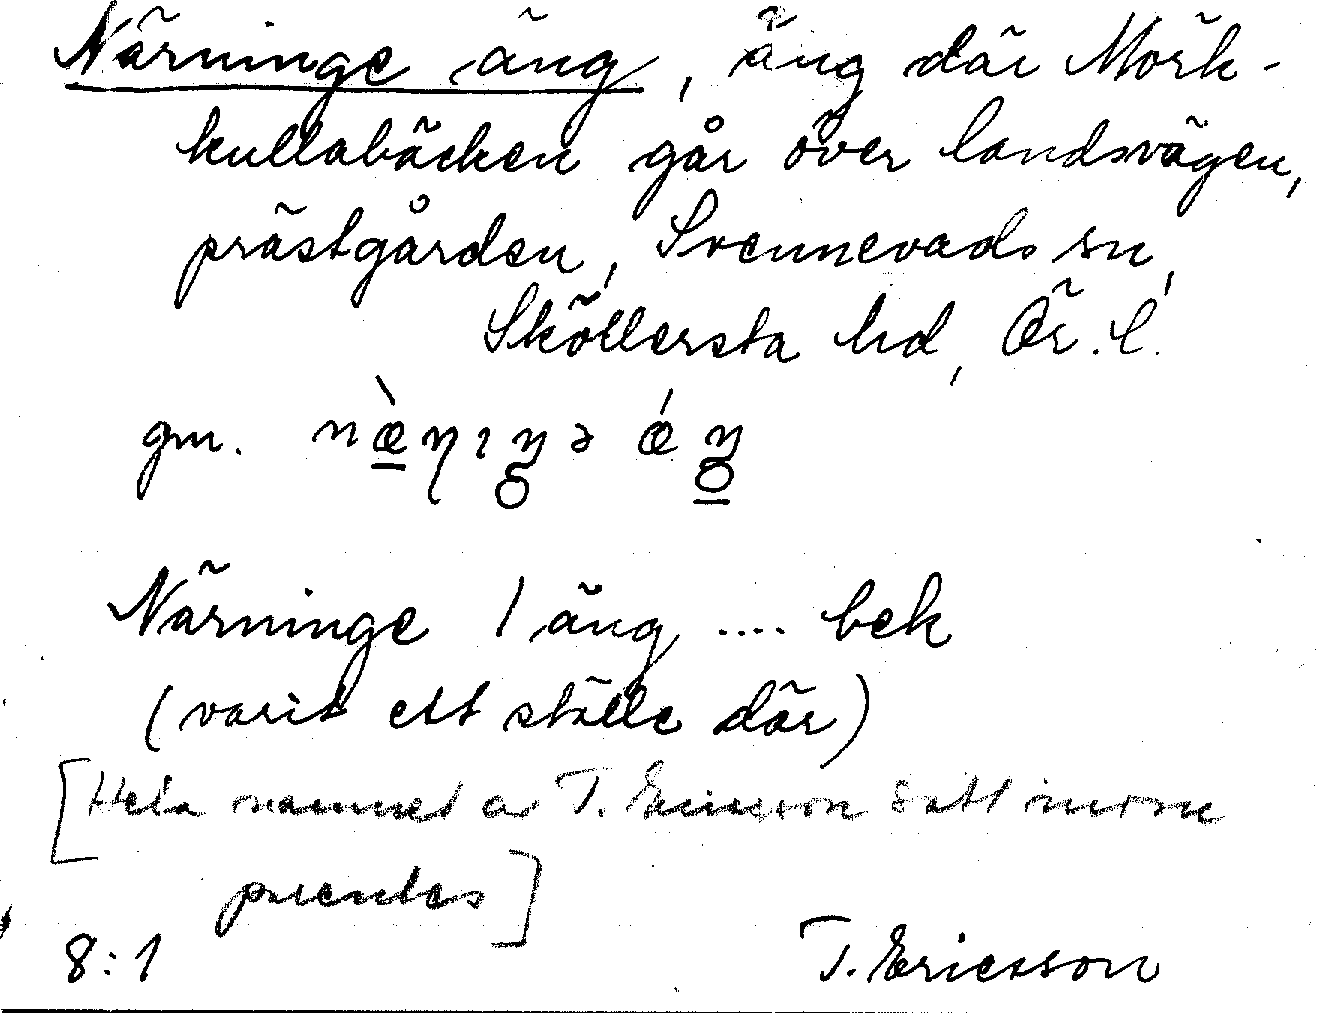 Närninge äng, äng där Mörk-
kullabäcken går över landsvägen,
prästgården, Svennevads sn,
Sköllersta hd, Ör. l.
gm.
Närninge / äng .... bek
(varit ett ställe där)
[Hela namnet av T. Ericsson satt inom
parentes]
8:1 T. Ericsson